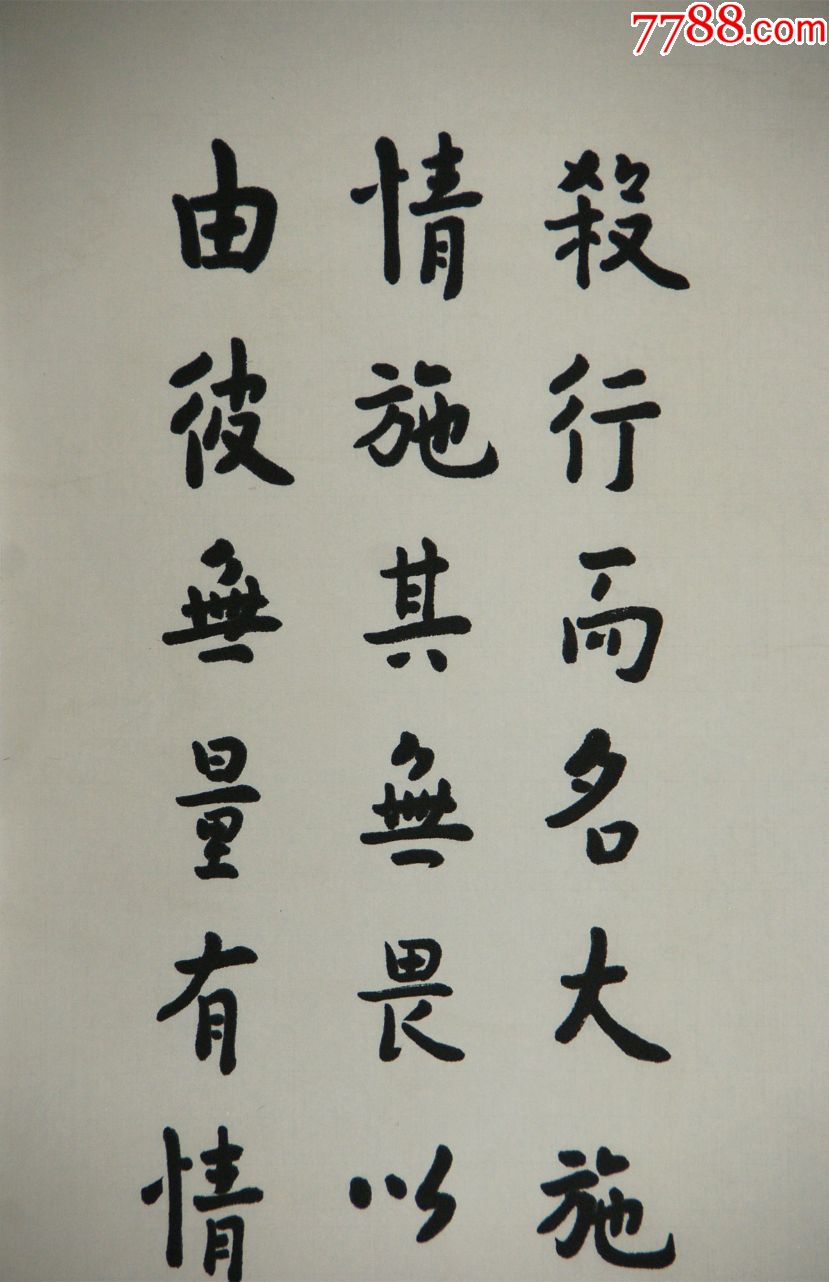 7788.com
殺行而名大施
情施其無畏以
由彼無量有情